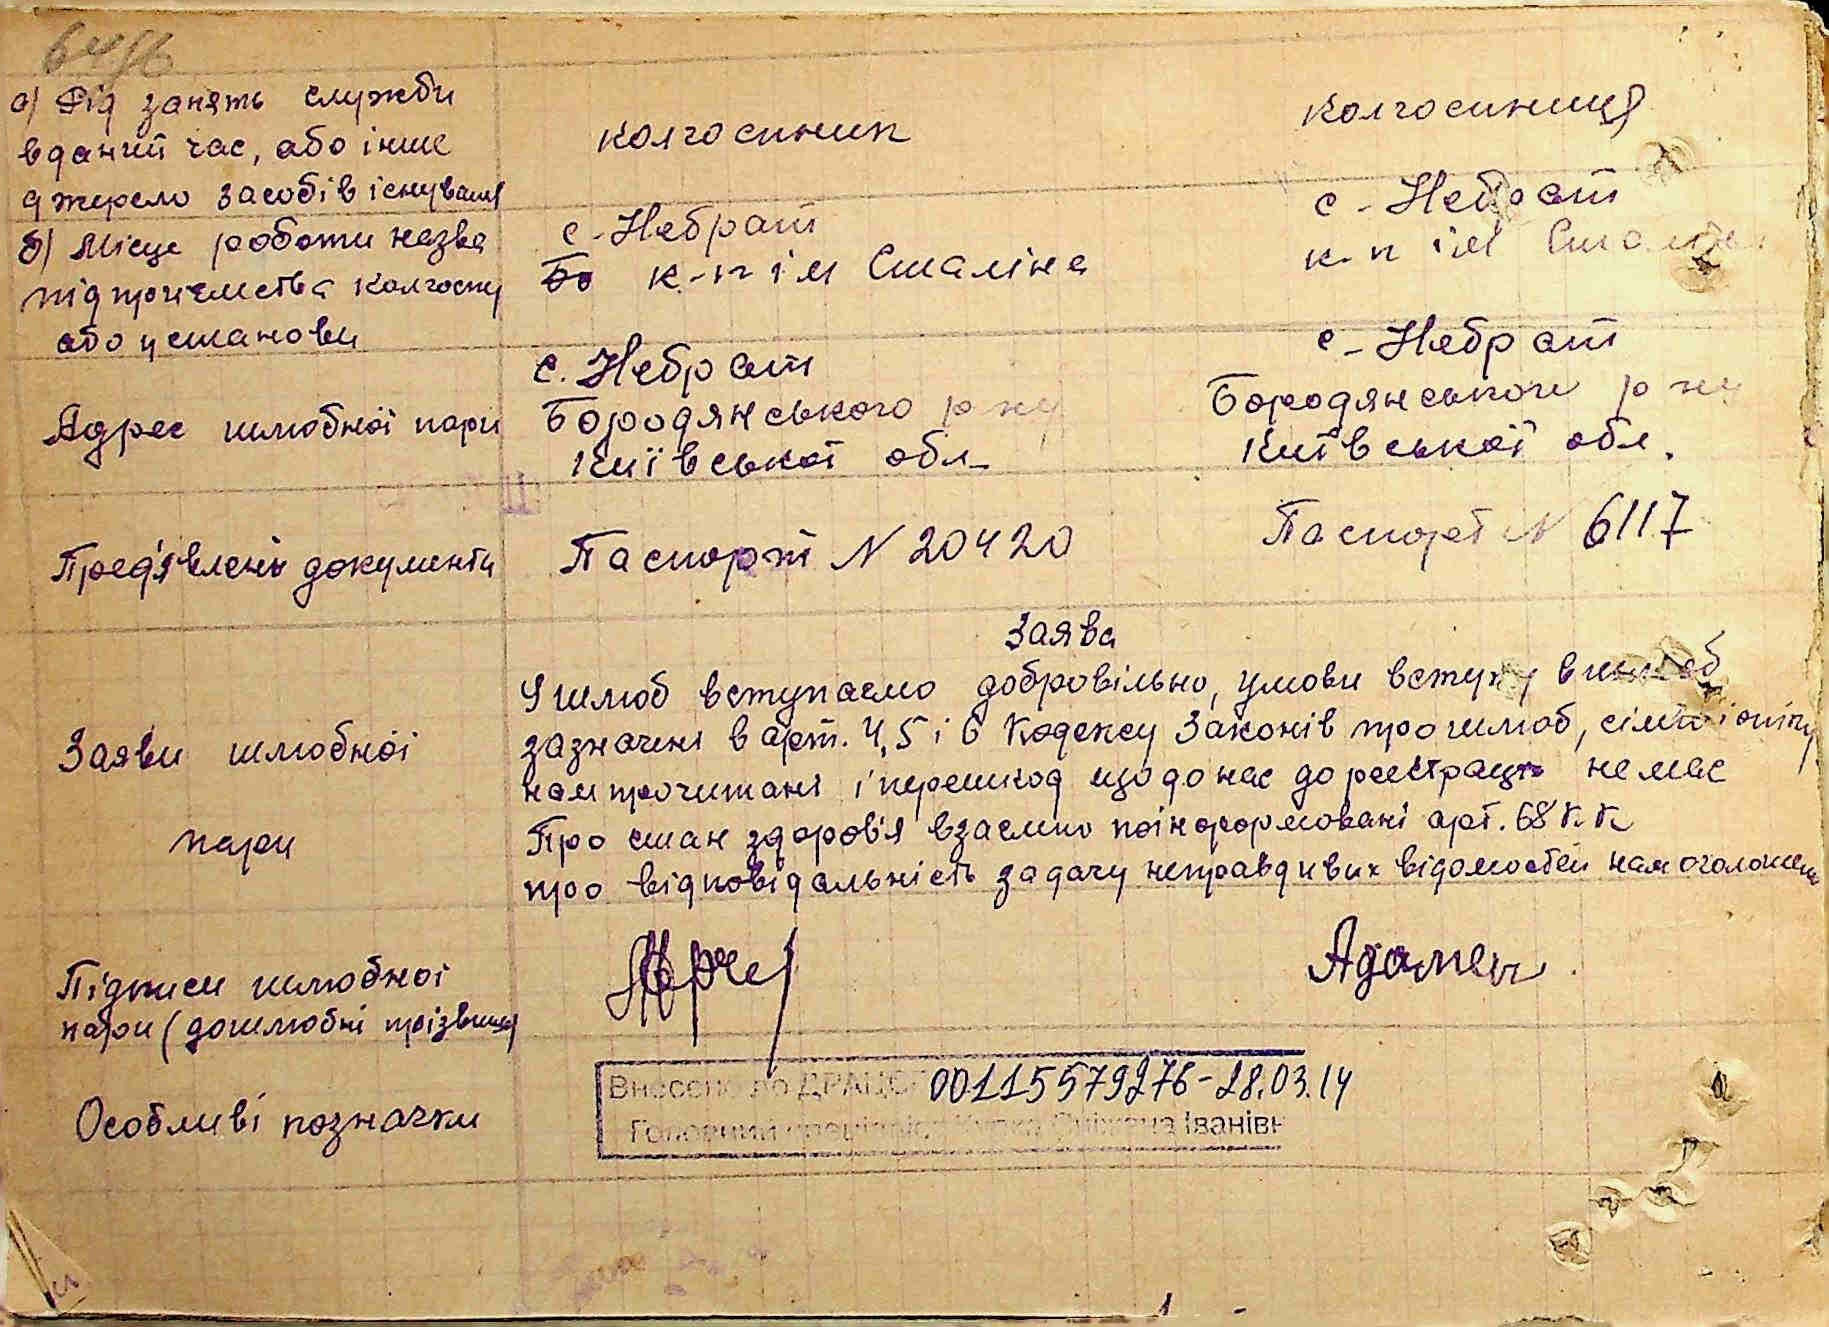 а) Рід занять служби
в даний час, або інше
джерело засобів існування
б) Місце роботи назва
підприємства колгоспу
або установи
колгоспник
с. Небрат
к-п ім Сталіна
колгоспниця
с. Небрат
к-п ім Сталіна
Адрес шлюбної пари
с. Небрат
Бородянського р-ну
Київської обл.
с. Небрат
Бородянського р-ну
Київської обл.
Пред'явлені документи
Паспорт N 20420
Паспорт N 6117
Заяви шлюбної
пари
Заява
У шлюб вступаємо добровільно, умови вступу в шлюб
зазначені в арт. 4, 5 і 6 Кодексу Законів про шлюб, сім'ю і опіку
нам прочитані і перешкод щодо нас до реєстрації немає
Про стан здоров'я взаємно поінформовані арт. 68 К.К.
про відповідальність за дачу неправдивих відомостей нам оголошена
Підписи шлюбної
пари (дошлюбні прізвища
Особливі позначки
Внесено до ДРАЦС 00115579276-28.03.14
Головний спеціаліст Іванівн